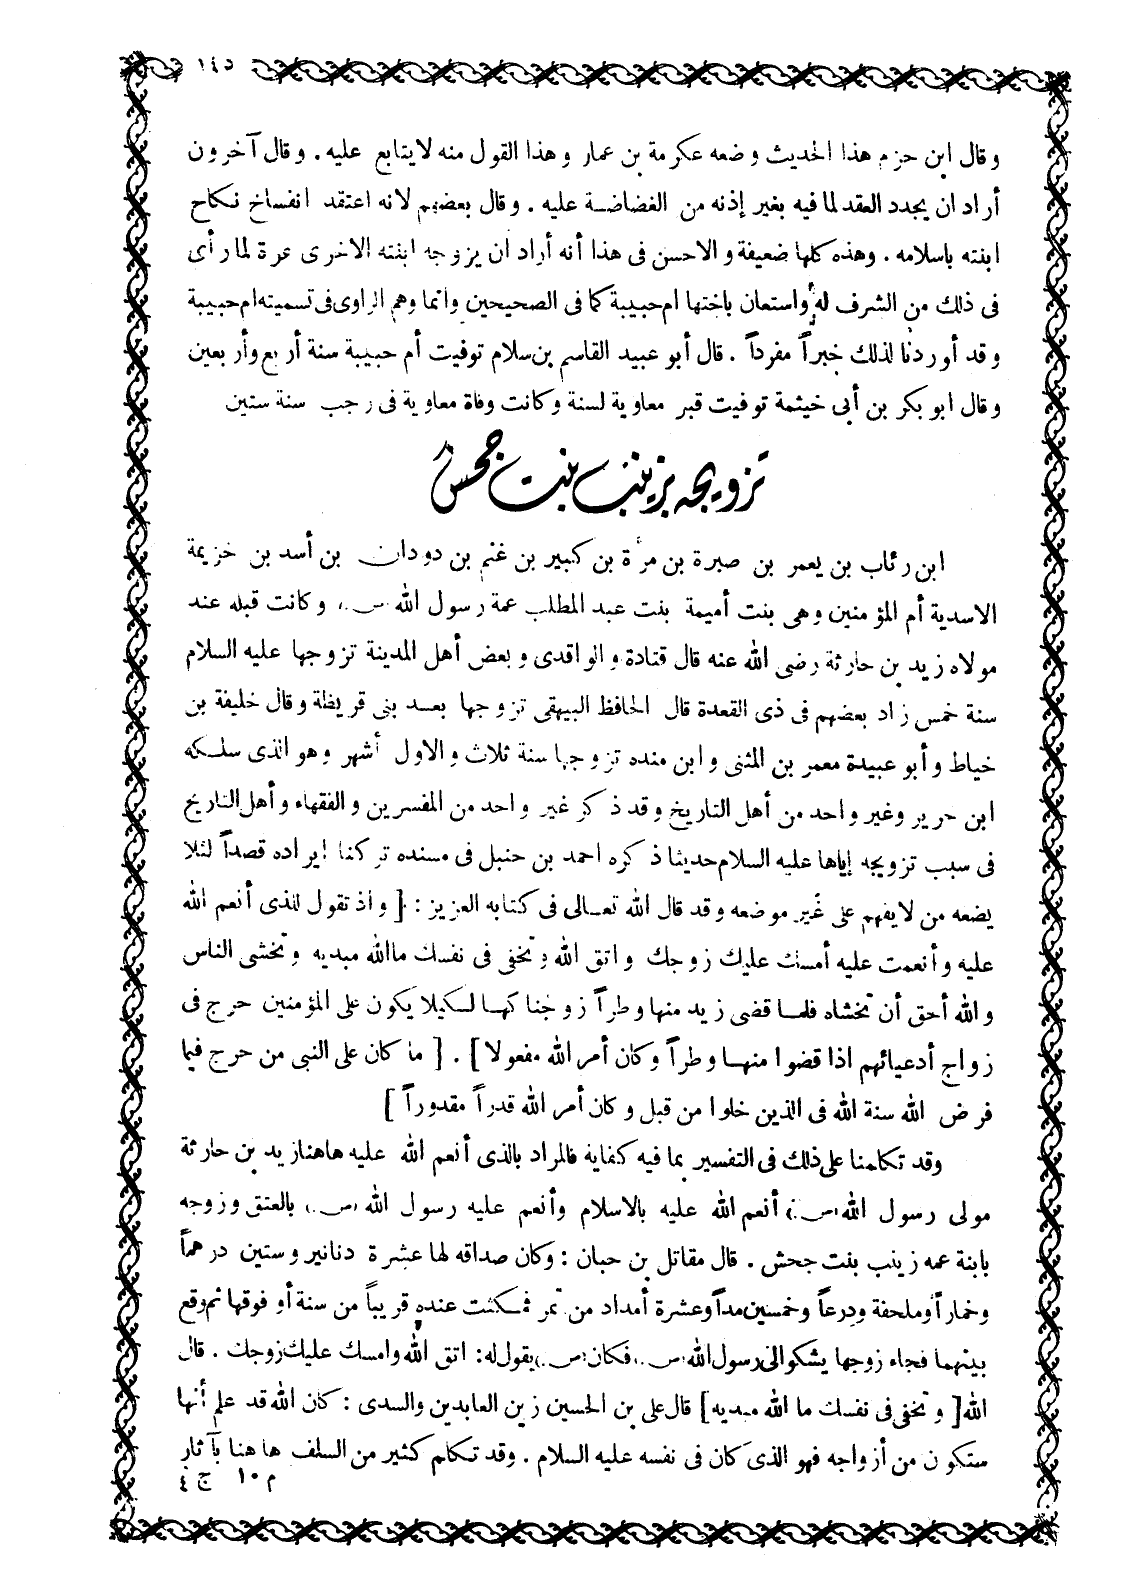 ١٤٥
وقال ابن حزم هذا الحديث وضعه عكرمة بن عمار وهذا القول منه لا يتابع عليه. وقال آخرون
أراد ان يجدد العقد لما فيه بغير إذنه من الغضاضة عليه. وقال بعضهم لانه اعتقد انفساخ نكاح
ابنته باسلامه. وهذه كلها ضعيفة والاحسن فى هذا أنه أراد ان يزوجه ابنته الاخرى عزة لما رأى
فى ذلك من الشرف له واستعان باختها ام حبيبة كما فى الصحيحين وانما وهم الراوى فى تسميته ام حبيبة
وقد أوردنا لذلك خبراً مفرداً. قال أبو عبيد القاسم بن سلام توفيت أم حبيبة سنة أربع وأربعين
وقال ابو بكر بن أبى خيثمة توفيت قبر معاوية لسنة وكانت وفاة معاوية فى رجب سنة ستين
تزويجه بزينب بنت جحش
ابن رئاب بن يعمر بن صبرة بن مرة بن كبير بن غنم بن دودان بن أسد بن خزيمة
الاسدية أم المؤمنين وهى بنت أميمة بنت عبد المطلب عمة رسول الله (ص) وكانت قبله عند
مولاه زيد بن حارثة رضى الله عنه قال قتادة والواقدى وبعض أهل المدينة تزوجها عليه السلام
سنة خمس زاد بعضهم فى ذى القعدة قال الحافظ البيهقى تزوجها بعد بنى قريظة وقال خليفة بن
خياط وأبو عبيدة معمر بن المثنى وابن منده تزوجها سنة ثلاث والاول أشهر وهو الذى سلكه
ابن جرير وغير واحد من أهل التاريخ وقد ذكر غير واحد من المفسرين والفقهاء وأهل التاريخ
فى سبب تزويجه إياها عليه السلام حديثا ذكره احمد بن حنبل فى مسنده تركنا إيراده قصداً لئلا
يضعه من لا يفهم على غير موضعه وقد قال الله تعالى فى كتابه العزيز : [ واذ تقول للذى أنعم الله
عليه وأنعمت عليه أمسك عليك زوجك واتق الله وتخفى فى نفسك ما الله مبديه وتخشى الناس
والله أحق أن تخشاه فلما قضى زيد منها وطراً زوجنا كها لكيلا يكون على المؤمنين حرج فى
زواج أدعيائهم اذا قضوا منها وطراً وكان أمر الله مفعولا ] . [ ما كان على النبى من حرج فيما
فرض الله سنة الله فى الذين خلوا من قبل وكان أمر الله قدراً مقدوراً ]
وقد تكلمنا على ذلك فى التفسير بما فيه كفاية فالمراد بالذى أنعم الله عليه هاهنا زيد بن حارثة
مولى رسول الله (ص) أنعم الله عليه بالاسلام وأنعم عليه رسول الله (ص) بالعتق وزوجه
بابنة عمه زينب بنت جحش . قال مقاتل بن حبان : وكان صداقه لها عشرة دنانير وستين درهماً
وخماراً وملحفة ودرعاً وخمسين مداً وعشرة أمداد من تمر فمكثت عنده قريباً من سنة أو فوقها ثم وقع
بينهما فجاء زوجها يشكو الى رسول الله (ص) فكان (ص) يقول له: اتق الله وامسك عليك زوجك . قال
الله [ وتخفى فى نفسك ما الله مبديه ] قال على بن الحسين زين العابدين والسدى : كان الله قد علم أنها
ستكون من أزواجه فهو الذى كان فى نفسه عليه السلام . وقد تكلم كثير من السلف هاهنا بآثار
م ١٠ ج ٤